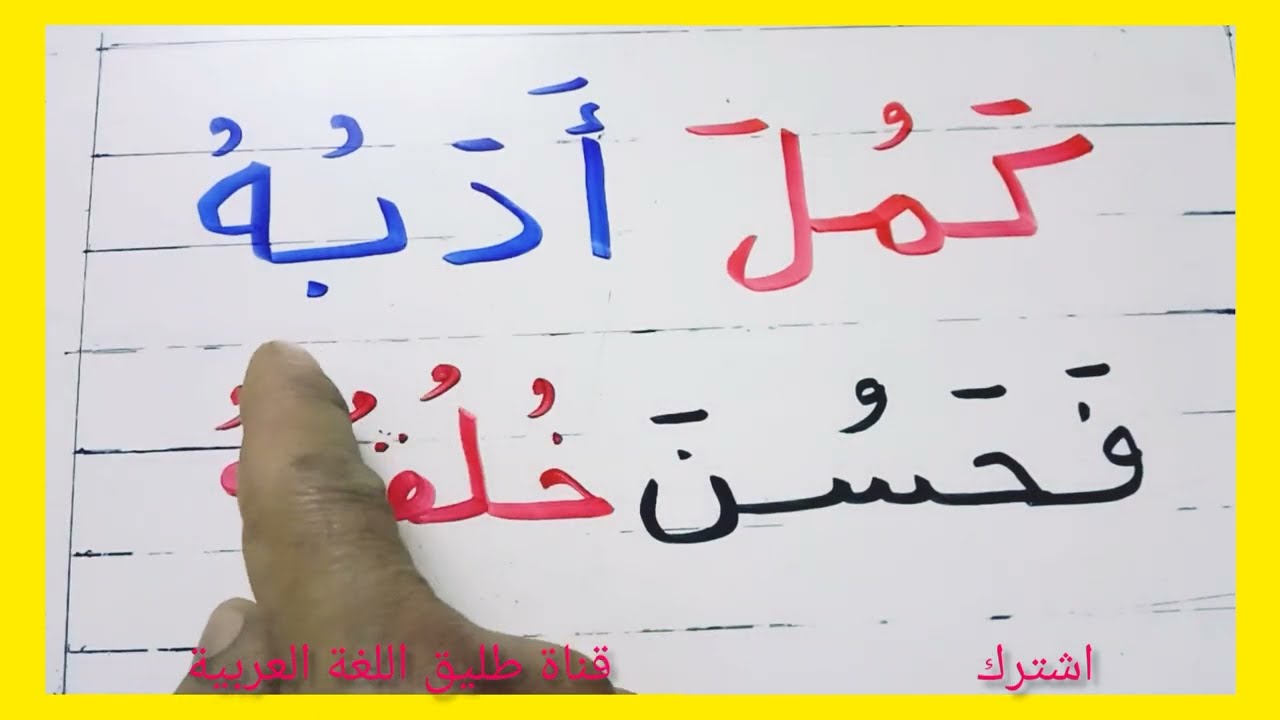 كَمُلَ أَدَبُهُ
فَحَسُنَ
قناة طليق اللغة العربية
اشترك